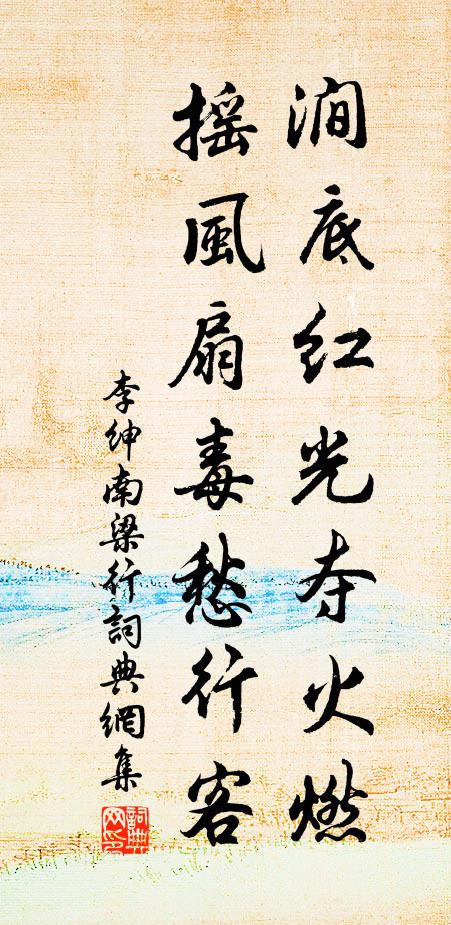 涧底红光夺火燃
摇風扇毒愁行客
李紳南梁行詞典網集
詞典网印